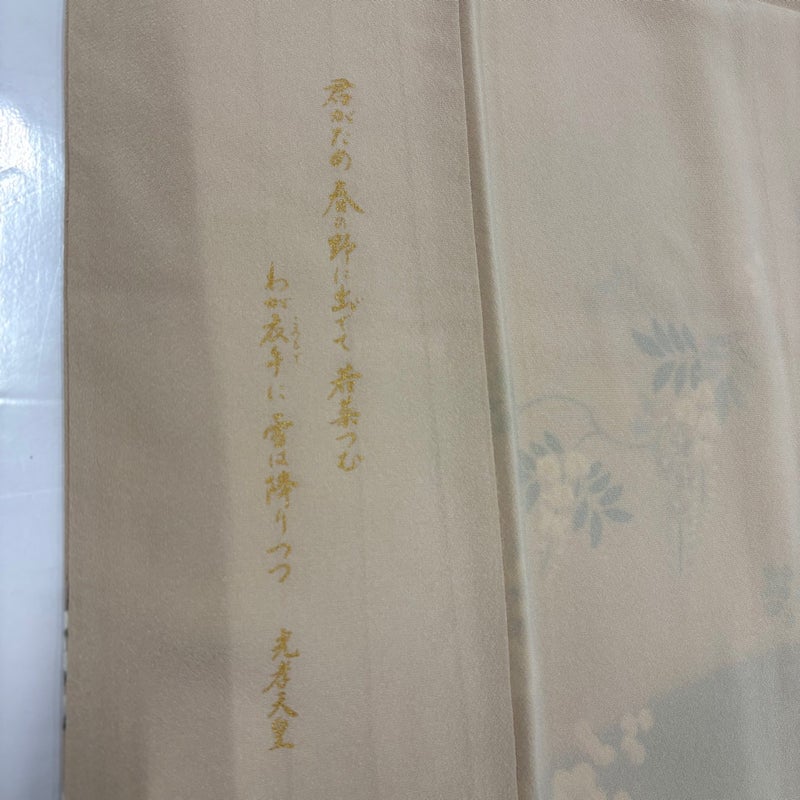 君がため 春の野に出でて 若菜つむ
わが衣手に 雪は降りつつ 光孝天皇
ころもで